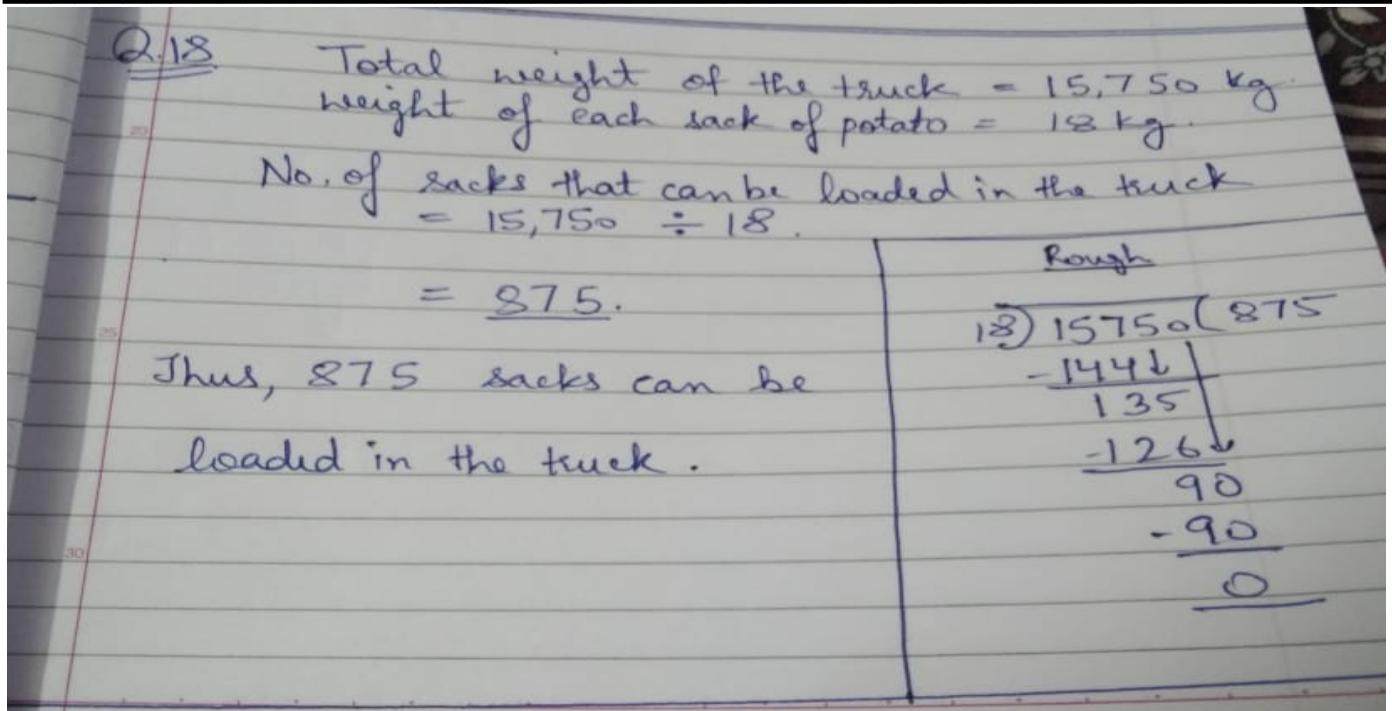 Q.18 Total weight of the truck = 15,750 kg.
weight of each sack of potato = 18 kg.
No. of sacks that can be loaded in the truck
= 15,750 ÷ 18.
= 875.
Thus, 875 sacks can be
loaded in the truck.
Rough
18) 15750 ( 875
-144↓
135
-126↓
90
-90
0
20
25
30